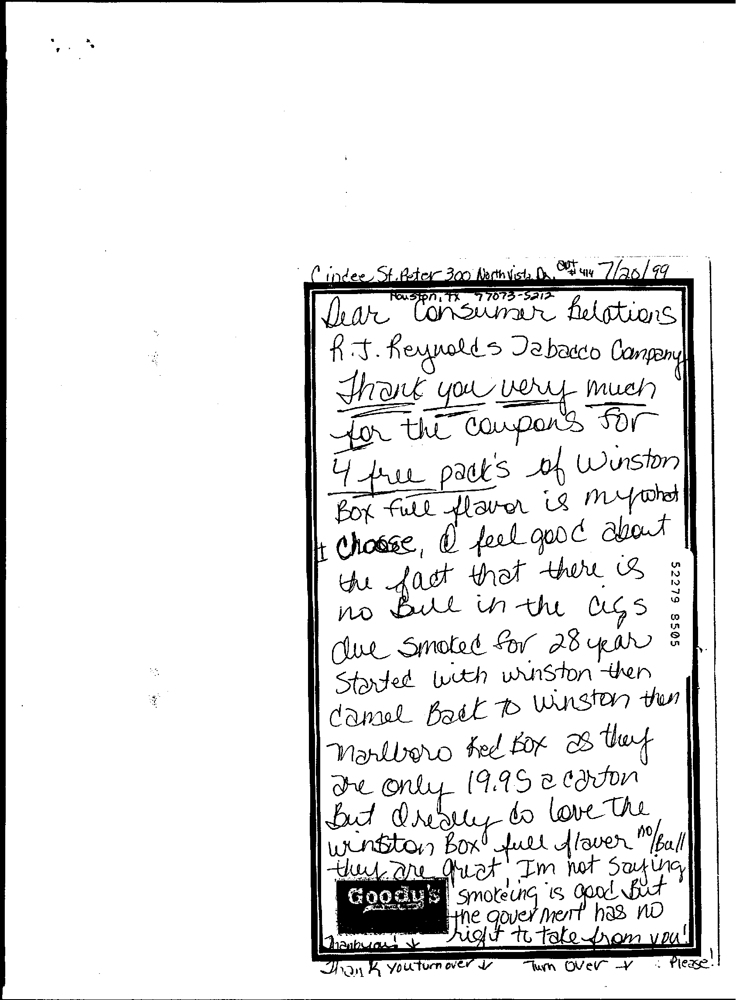 Cindee St. Peter 300 Northvista Dr. apt # 414 7/20/99
Houston, TX 77073-5212
Dear Consumer Relations
R.J. Reynolds Tabacco Company
Thank you very much
for the coupons for
4 free pack's of Winston
Box full flavor is my what
I Choose, I feel good about
the fact that there is
no Bull in the cigs
I've smoked for 28 year
Started with winston then
Camel Back to Winston then
Marlboro Red Box as they
are only 19.95 a carton
But I really do love the
winston Box full flavor no/Bull
they are great, Im not saying
smokeing is good But
the goverment has no
right to take from you!
Goody's
Thank you turn over Turn over : Please!!
52279 8505